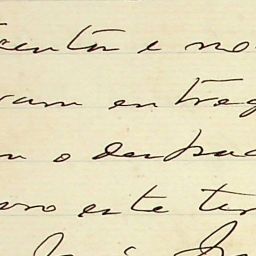 centa e no
ram entreg
n o despac
vro este ter